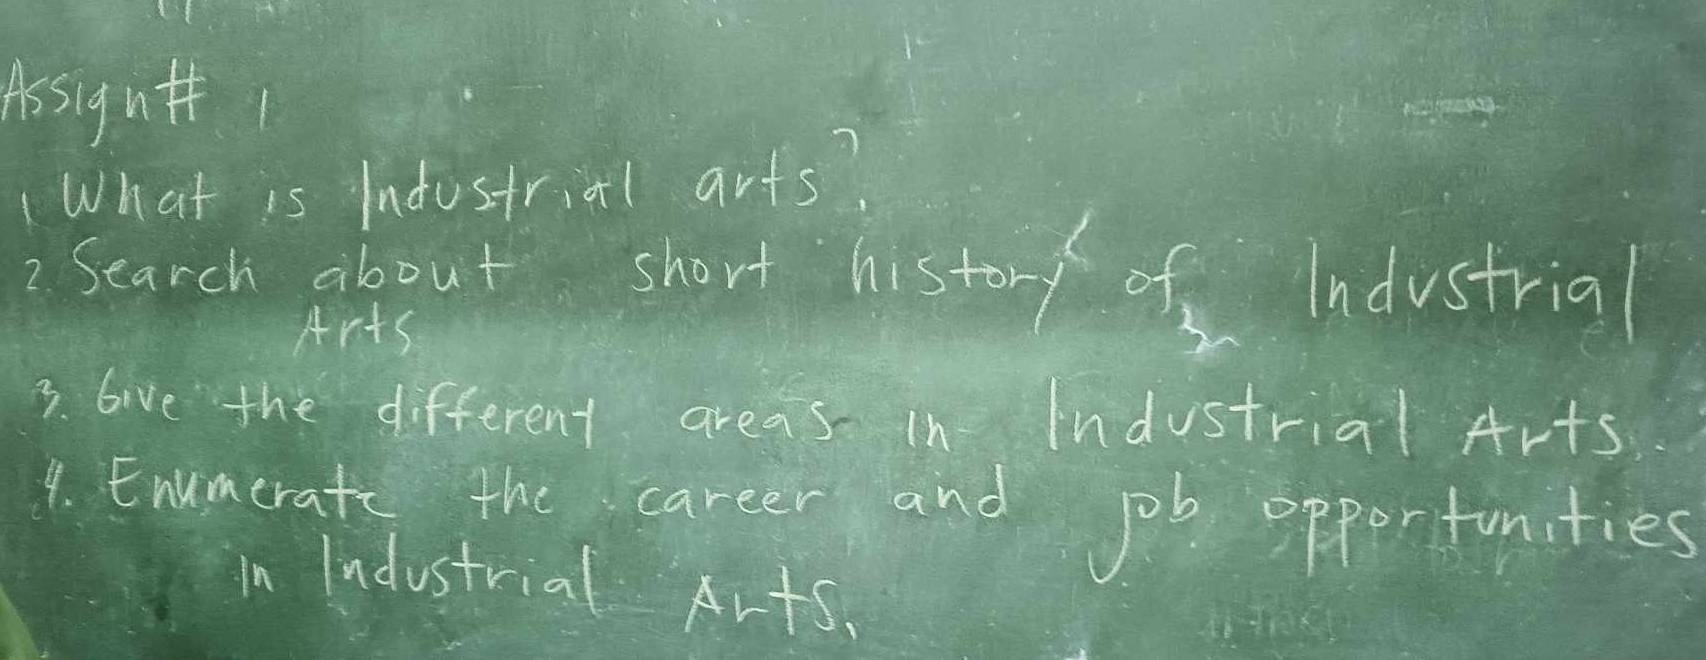 Assign# 1
1. What is Industrial arts?
2. Search about short history of Industrial
Arts
3. Give the different areas in Industrial Arts.
4. Enumerate the career and job opportunities
in Industrial Arts.